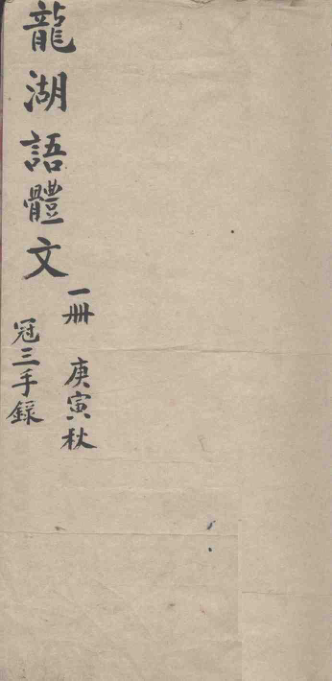 龍湖語體文
一冊 庚寅秋
冠三手錄